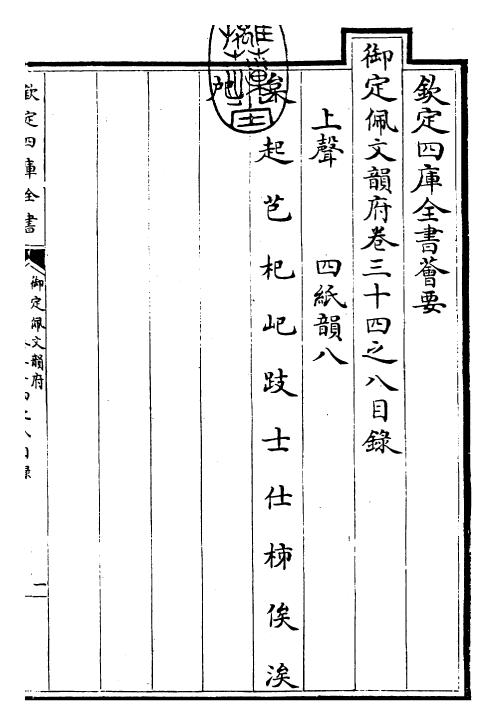 欽定四庫全書薈要
御定佩文韻府卷三十四之八目錄
上聲 四紙韻八
起 芑 杞 屺 跂 士 仕 柹 俟 涘
欽定四庫全書
御定佩文韻府